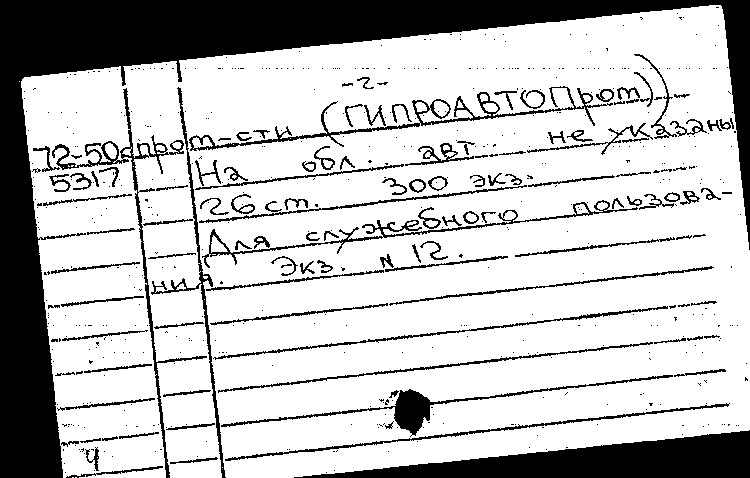 -2-
72-50 апром-сти (ГИПРОАВТОПром)
5317 На обл. авт. не указаны
26 ст. 300 экз.
Для служебного пользова-
ния. Экз. N 12.
4